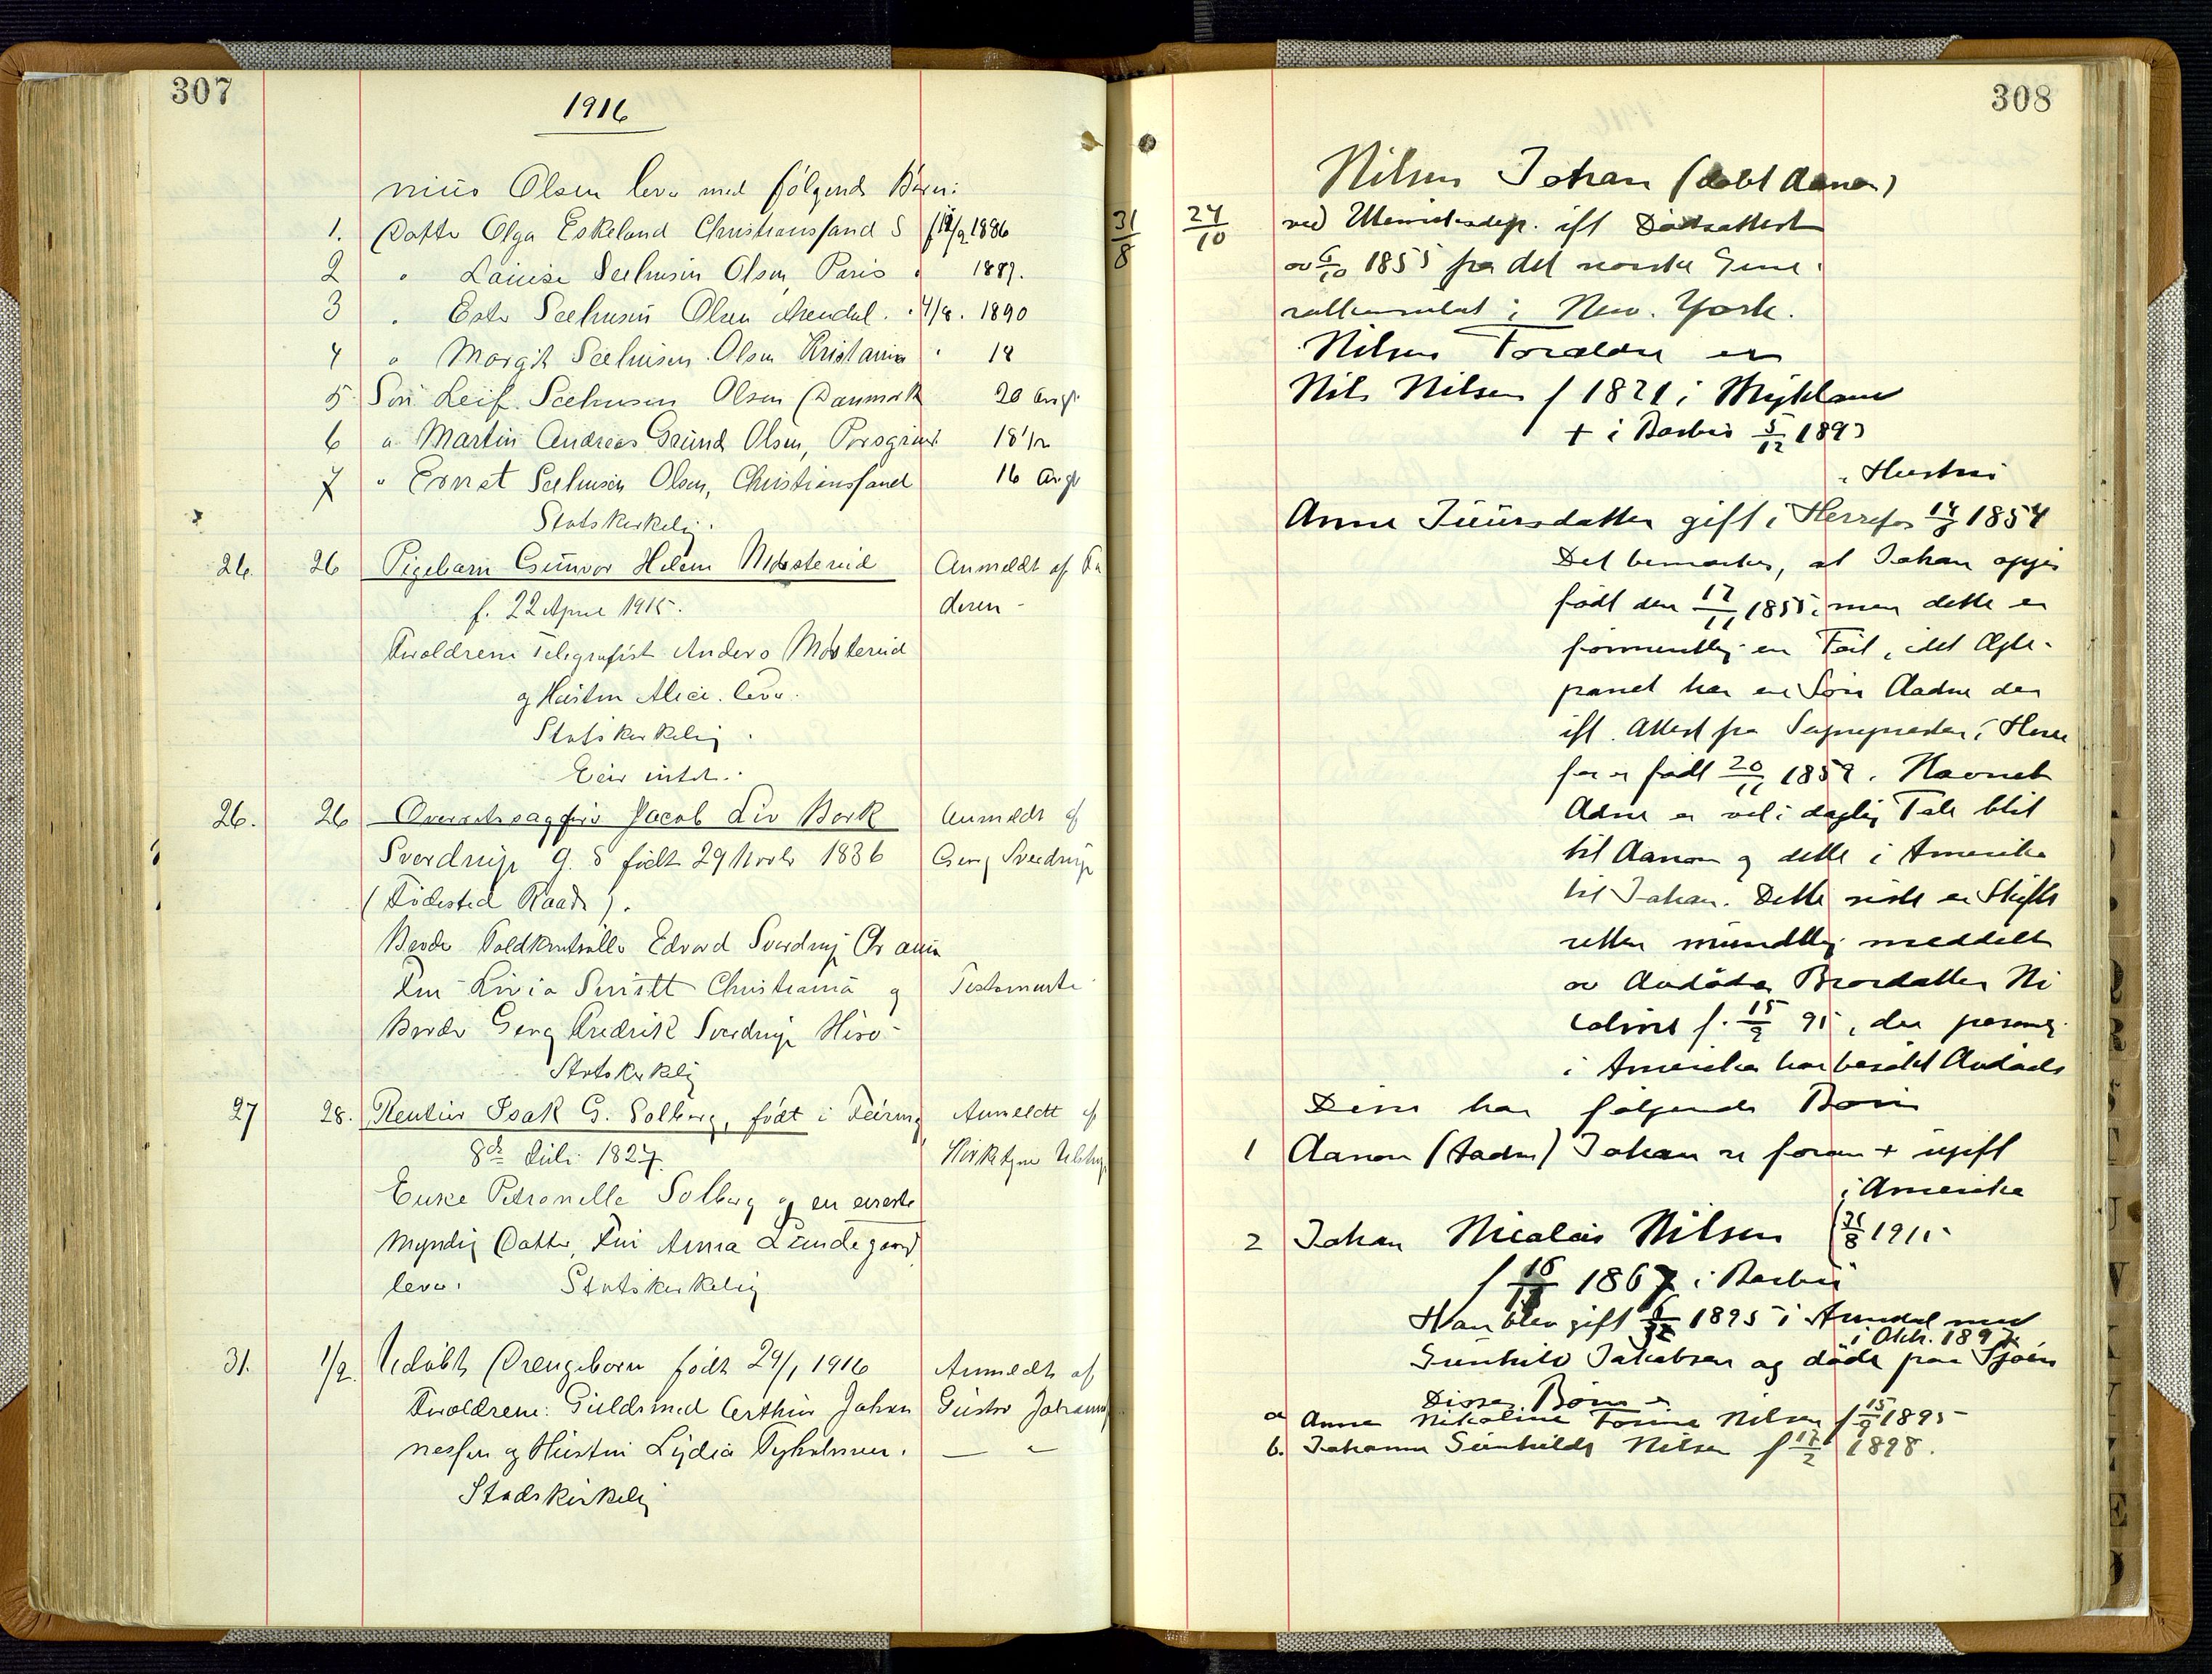 307
1916
nius Olsen leve med følgende Børn:
1. Datter Olga Eskeland Christiansand S f 12/2 1886
2 " Louise Seehusen Olsen, Paris " 1889.
3 " Ester Seehusen Olsen Arendal. " 4/8. 1890
4 " Margit Seehusen Olsen Kristania " 18
5 Søn Leif Seehusen Olsen (Danmark 20 aar gl.
6 " Martin Andreas Grund Olsen, Porsgrund 18 1/2
7 " Ernst Seehusen Olsen, Christiansand 16 aar gl
Statskirkelig.
26. 26 Pigebarn Gunvor Helene Mosterud Anmeldt af Fa
f. 22 April 1915. deren -
Forældrene Telegrafist Anders Mosterud
og Hustru Alice. leve.
Statskirkelig.
Eier intet.
26. 26 Overretssagfører Jacob Liv Bork Anmeldt af
Sverdrup g. S født 29 Novbr 1836 Georg Sverdrup
(Fødested Raade).
Broder Toldkontrollør Edvard Sverdrup Chr ania
Fru Livia Smitt Christiania og Testamente
Broder Georg Fredrik Sverdrup Hisø-
Statskirkelig
27 28. Rentier Isak G. Solberg, født i Feiring Anmeldt af
8de Juli 1827. Kirketjener
Enke Petronelle Solberg og en eneste
Myndig Datter, Fru Anna Lundegaard
leve. Statskirkelig
31. 1/2. Udøbt Drengebarn født 29/1 1916 Anmeldt af
Forældrene: Guldsmed Arthur Johan Gustav Johannes
nessen og Hustru Lydia Tyholmen. — "
Stadskirkelig
308
Nilsen Johan (døbt Aanon)
31/8 24/10 ved Utenriksdep. ift Dødsattest
av 6/10 1855 fra det norske Gene
ralkonsulat i New. York.
Nilsens Forældre er
Nils Nilsen f 1821 i Mykland
+ i Barbu 5/12 1893
" Hustru
Anne Tiuursdatter gift i Herrefos 14/7 1854
Det bemerkes, at Johan opgis
født den 17/11 1855, men dette er
formentlig en Feil, idet Ægte-
parret har en Søn Aadne der
ift. Attest fra Sognepresten i Herre
fos er født 20/11 1859. Navnet
Adne er vel i daglig Tale blit
til Aanon og dette i Amerika
til Johan. Dette siste er Skifte
retten mundtlig meddelt
av Avdødes Brordatter Ni
coline f. 15/9 95, der personlig
i Amerika har besøkt Avdøde
Disse har følgende Børn
1 Aanon (Aadne) Johan se foran + ugift
i Amerika
2 Johan Nicolai Nilsen 31/8 1911
f 18 1867 i Barbu
Han blev gift 1895 i Arendal med
i Oktr. 1897
Gunhild Jakobsen og døde paa Sjøen
Disses Børn er
a Anna Nikoline Tomine Nilsen f 15/9 1895
b. Johanne Gunhilde Nilsen f 17/2 1898.